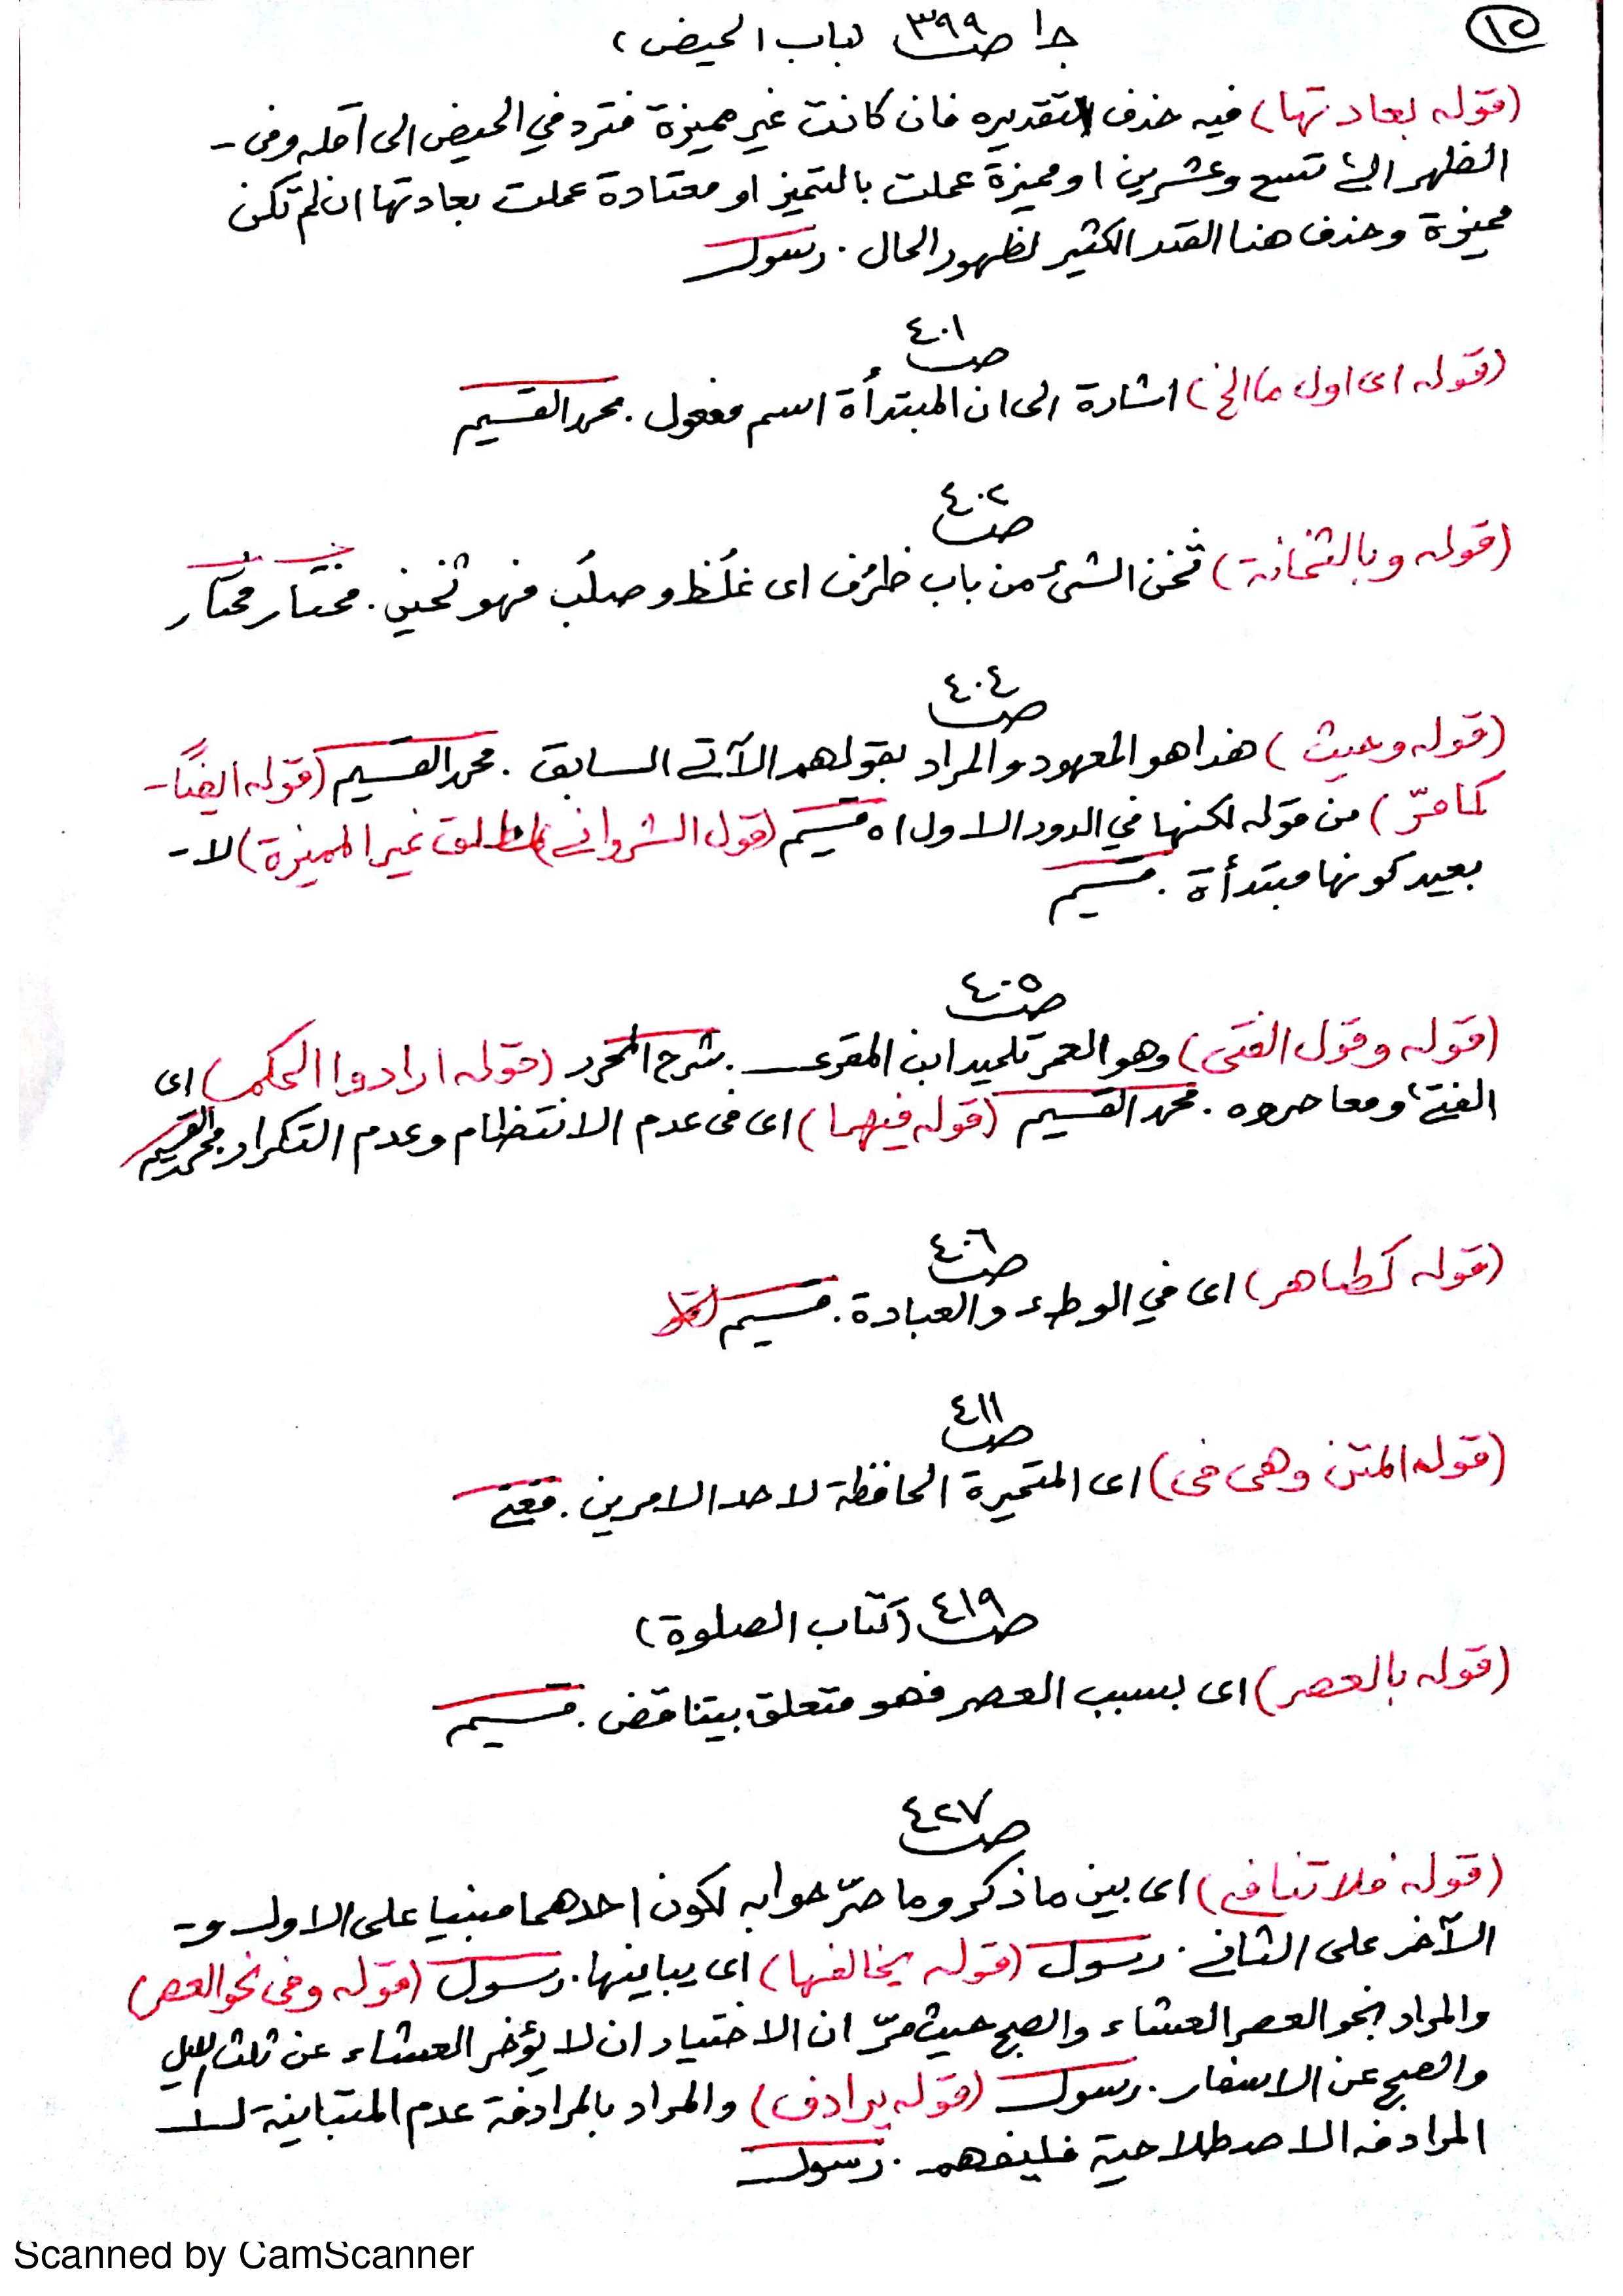 ١٥
جا ص٣٩٩ (باب الحيض)
(قوله بعادتها) فيه حذف تقديره فان كانت غير مميزة فترد في الحيض الى اقله وفى -
الطهر الى تسع وعشرين او مميزة عملت بالتميز او معتادة عملت بعادتها ان لم تكن
مميزة وحذف هنا القدر الكثير لظهور الحال . رسول
ص٤٠١
(قوله اى اول ما الخ) اشارة الى ان المبتدأة اسم مفعول . محمد القسيم
ص٤٠٢
(قوله وبالثخانة) ثخن الشئ من باب ظرُف اى غلُظ وصلُب فهو ثخين . مختار
ص٤٠٤
(قوله وحيث) هذا هو المعهود والمراد بقولهم الآتى السابق . محمد القسيم (قوله ايضًا -
كما مرّ) من قوله لكنها في الدور الاول اه قسيم (قول الشروانى لمطلق غير المميزة) لا -
بعيد كونها مبتدأة . قسيم
ص٤٠٥
(قوله وقول الفتى) وهو العمر تلميد ابن المقرى . شرح المحرر (قوله ارادوا الحكم) اى
الفتى ومعاصروه . محمد القسيم (قوله فيهما) اى فى عدم الانتظام وعدم التكرار محمد القسيم
ص٤٠٦
(قوله كطاهر) اى في الوطء والعبادة . قسيم
ص٤١١
(قوله المتن وهى فى) اى المتحيرة الحافظة لاحد الامرين .
ص٤١٩ (كتاب الصلوة)
(قوله بالعصر) اى بسبب العصر فهو متعلق بيتناقض . قسيم
ص٤٢٧
(قوله فلا تنافى) اى بين ما ذكر وما مرّ جوابه لكون احدهما مبنيا على الاول و -
الآخر على الثانى . رسول (قوله يخالفها) اى يباينها . رسول (قوله وفى نحو العصر)
والمراد بنحو العصر العشاء والصبح حيث مرّ ان الاختيار ان لا يؤخر العشاء عن ثلث الليل
والصبح عن الاسفار . رسول (قوله يرادف) والمراد بالمرادفة عدم المتباينة لا
المرادفه الاصطلاحية فليفهم . رسول
Scanned by CamScanner